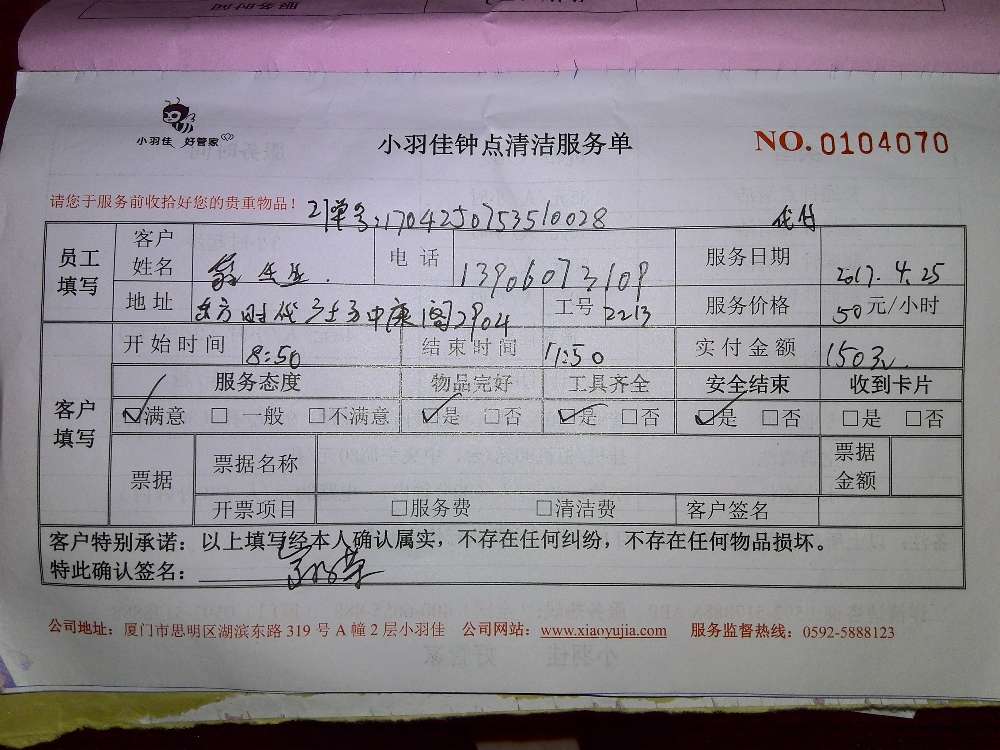 小羽佳 好管家
小羽佳钟点清洁服务单
NO.0104070
请您于服务前收拾好您的贵重物品！
订单号:1704250753510028 代付
员工填写 客户姓名 先生 电话 13906073109 服务日期 2017.4.25
地址 东方时代广场中康阁2904 工号 2213 服务价格 50元/小时
客户填写 开始时间 8:50 结束时间 11:50 实付金额 150元
服务态度 物品完好 工具齐全 安全结束 收到卡片
☑满意 □一般 □不满意 ☑是 □否 ☑是 □否 ☑是 □否 □是 □否
票据 票据名称 票据金额
开票项目 □服务费 □清洁费 客户签名
客户特别承诺：以上填写经本人确认属实，不存在任何纠纷，不存在任何物品损坏。
特此确认签名：
公司地址：厦门市思明区湖滨东路 319 号 A 幢 2 层小羽佳 公司网站：www.xiaoyujia.com 服务监督热线：0592-5888123